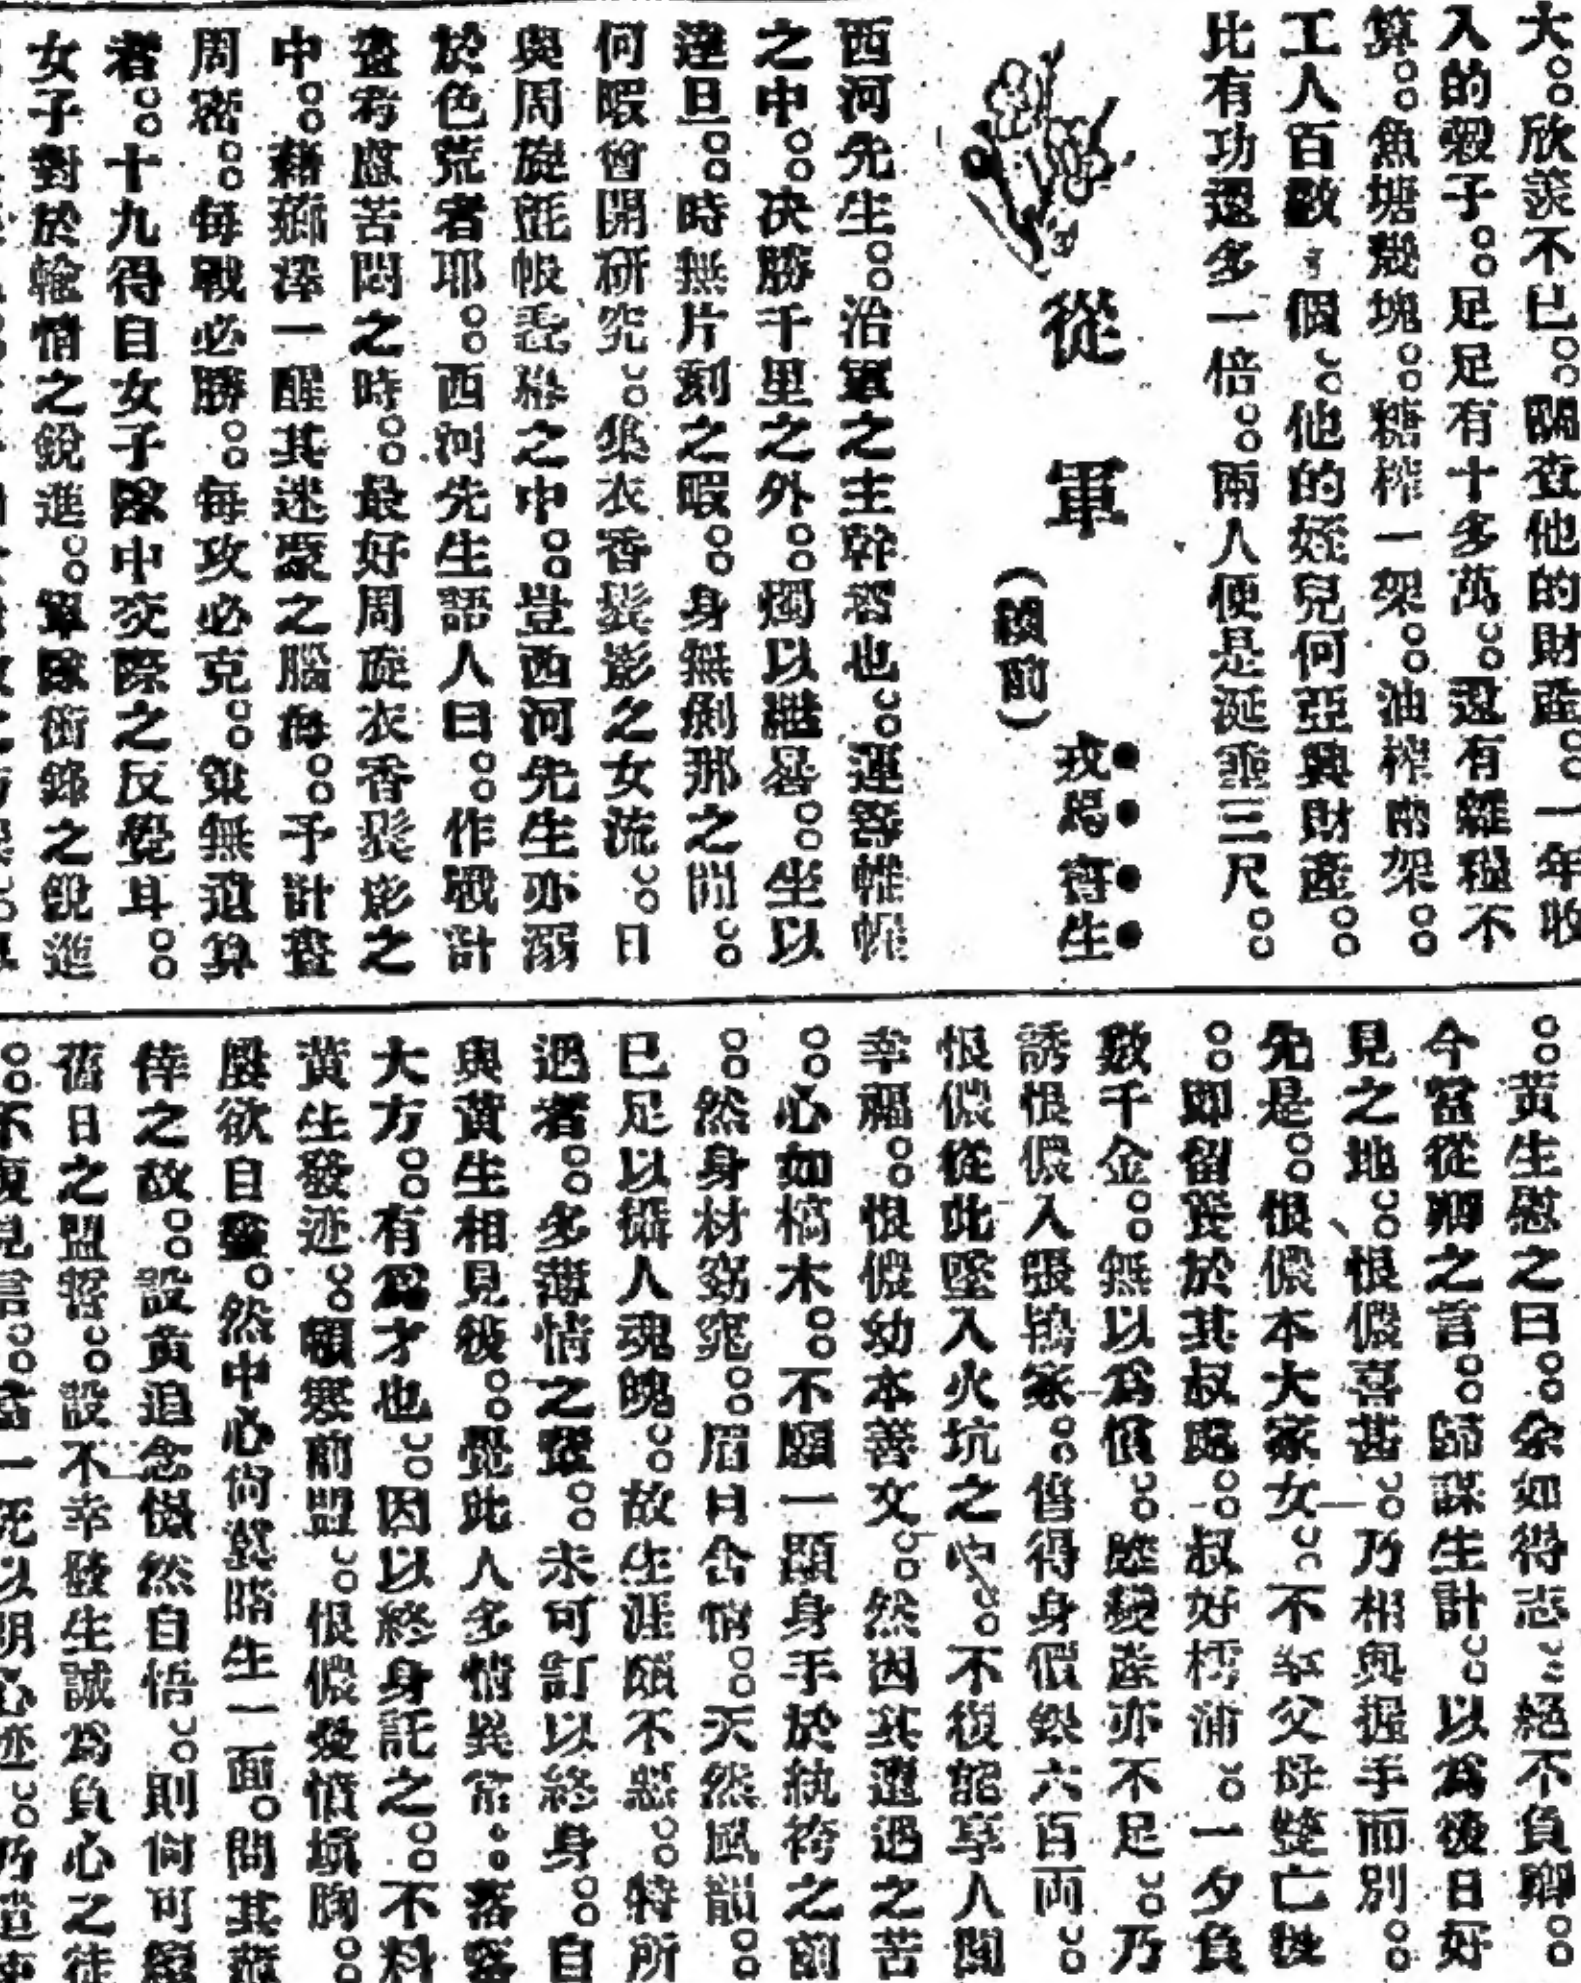 大。欣羨不已。關查他的財產。一年收
入的穀子。足足有十多萬。還有雜糧不
算。魚塘幾塊。糖榨一架。油榨兩架。
工人百數十個。他的姪兒何亞興財產。
比有功還多一倍。兩人便是涎垂三尺。
從軍
(續前)
戎馬書生
西河先生。治軍之主幹者也。運籌帷幄
之中。决勝千里之外。燭以繼晷。坐以
達旦。時無片刻之暇。身無剎那之閒。
何暇曾開研究。集衣香鬓影之女流。日
與周旋於帳幕之中。豈西河先生亦溺
於色荒者耶。西河先生語人曰。作戰計
畫考慮苦悶之時。最好周旋衣香鬓影之
中。藉薌澤一醒其迷蒙之腦海。予計畫
周密。每戰必勝。每攻必克。策無遺算
者。十九得自女子隊中交際之反覺耳。
女子對於輸情之銳進。軍隊衝鋒之銳進
。黃生慰之曰。余如得志。絕不負卿。
今當從卿之言。歸謀生計。以爲後日好
見之地。恨儂喜甚。乃相與握手而別。
先是。恨儂本大家女。不幸父母雙亡後
。即留養於其叔處。叔好樗蒲。一夕負
數千金。無以爲償。雖變產亦不足。乃
誘恨儂入張鴇家。售得身價銀六百両。
恨儂從此墜入火坑之中。不復能享人間
幸福。恨儂幼本善文。然因其遭遇之苦
。心如槁木。不願一顯身手於紈袴之前
。然身材窈窕。眉目含情。天然風韻。
已足以攝人魂魄。故生涯頗不惡。特所
遇者。多薄情之輩。未可訂以終身。自
與黃生相見後。覺此人多情異常。落落
大方。有爲才也。因以終身託之。不料
黃生發迹。頓寒前盟。恨儂憂憤填胸。
屢欲自盡。然中心尚冀晤生一面。問其薄
倖之故。設黃追念慨然自悟。則何可輕
舊日之盟誓。設不幸發生誠爲負心之徒